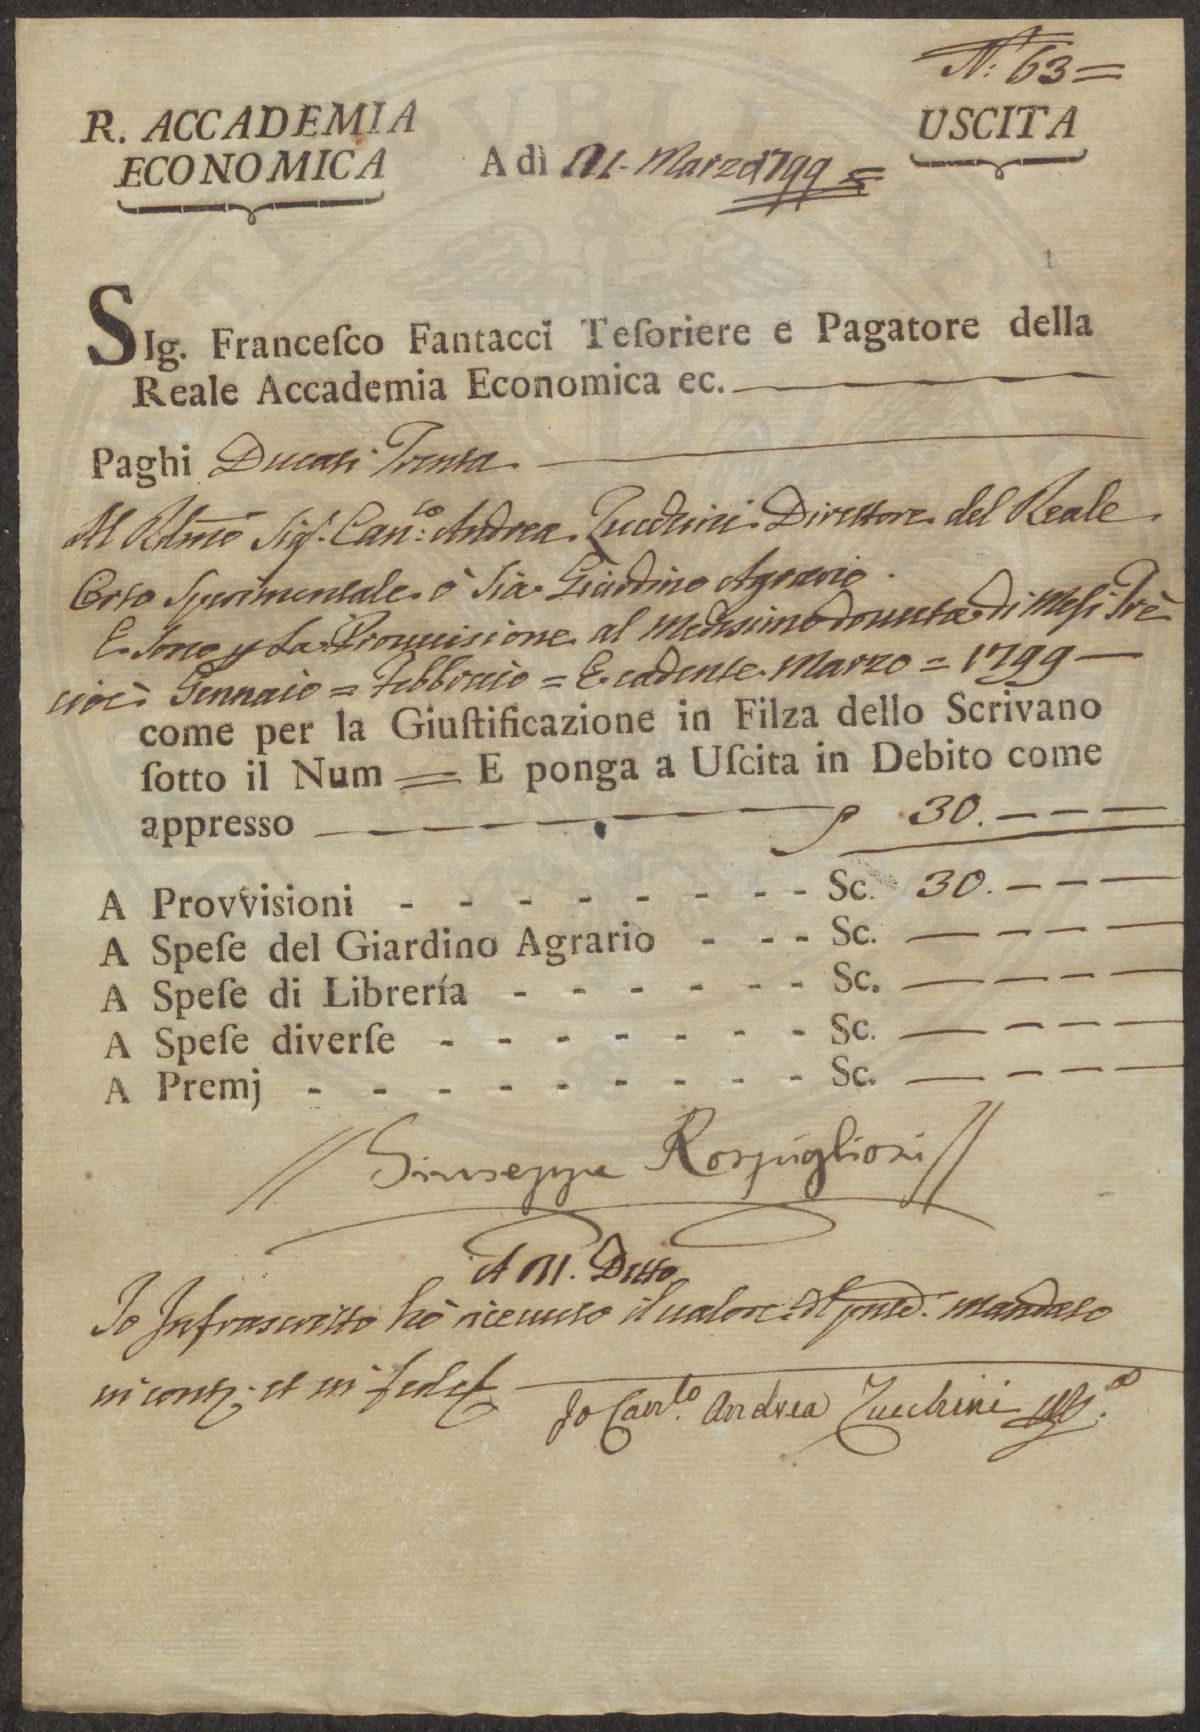 N.: 63 =
R. ACCADEMIA
ECONOMICA
USCITA
A dì Marzo 1799 =
1
SIg. Franceſco Fantacci Teſoriere e Pagatore della
Reale Accademia Economica ec.
Paghi Ducati Trenta
Al Sig.r Can.co Andrea Zucchini Direttore del Reale
Orto Sperimentale ò sia Giardino Agrario
E sono p La Provvisione al Medesimo dovuta di Mesi Trè
cioè Gennaio = Febbraio = E cadente Marzo = 1799 —
come per la Giuſtificazione in Filza dello Scrivano
ſotto il Num = E ponga a Uſcita in Debito come
appresso 30. — — —
A Provvisioni - - - - - - - - Sc. 30. — — —
A Speſe del Giardino Agrario - - - Sc. — — — —
A Speſe di Librería - - - - - - Sc. — — — —
A Speſe diverſe - - - - - - - Sc. — — — —
A Premj - - - - - - - - - Sc. — — — —
Giuseppe Rospigliosi
A Detto
Io Infrascritto hò ricevuto il valore del pnte mandato
in cont. et in fede
Io Can.co Andrea Zucchini